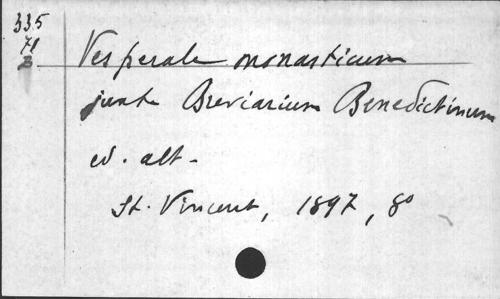 335
71
B
Vesperale monasticum
juxta Breviarium Benedictinum
ed. alt.
St. Vincent, 1897, 8°